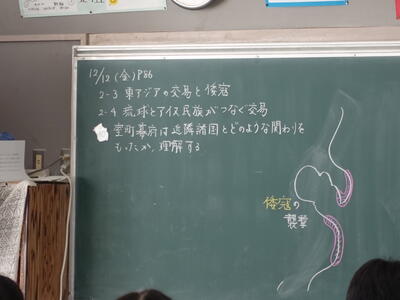 12/12 (金) P86
2-3 東アジアの交易と倭寇
2-4 琉球とアイヌ民族がつなぐ交易
室町幕府は近隣諸国とどのような関わりを
もったか、理解する
倭寇の
襲撃